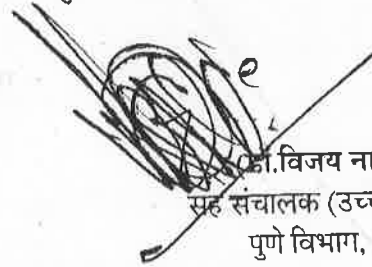 डॉ.विजय ना
सह संचालक (उच्च
पुणे विभाग,